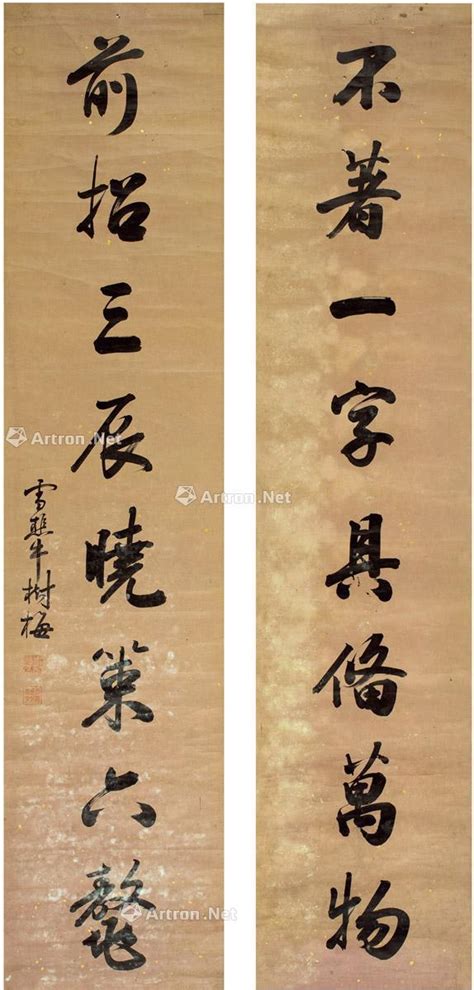 不著一字具備萬物
前招三辰曉策六鼇
雪樵牛樹梅
Artron.Net
Artron.Net
Artron.Net